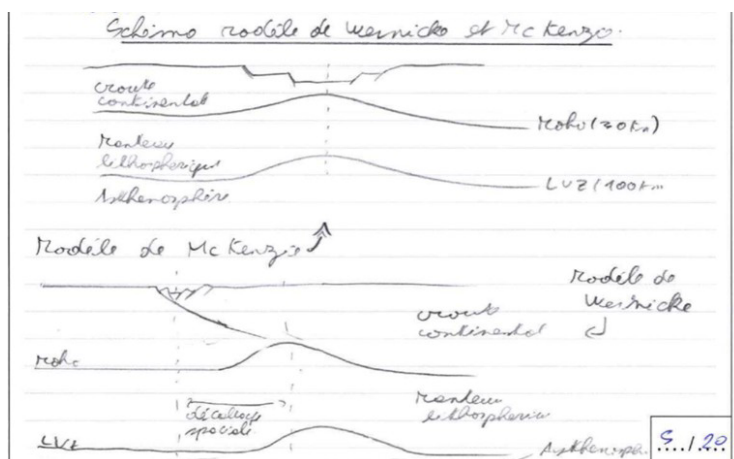 Schéma modèle de Wernicke et Mc Kenzie.
croute
continental
Moho (30 Km)
Manteau
lithospherique
LVZ (100 km
Asthenosphère
Modèle de Mc Kenzie
Modèle de
Wernicke
croute
continental
Moho
décallage
spaciale
Manteau
lithospherique
LVZ
Asthenosph.
5 / 20